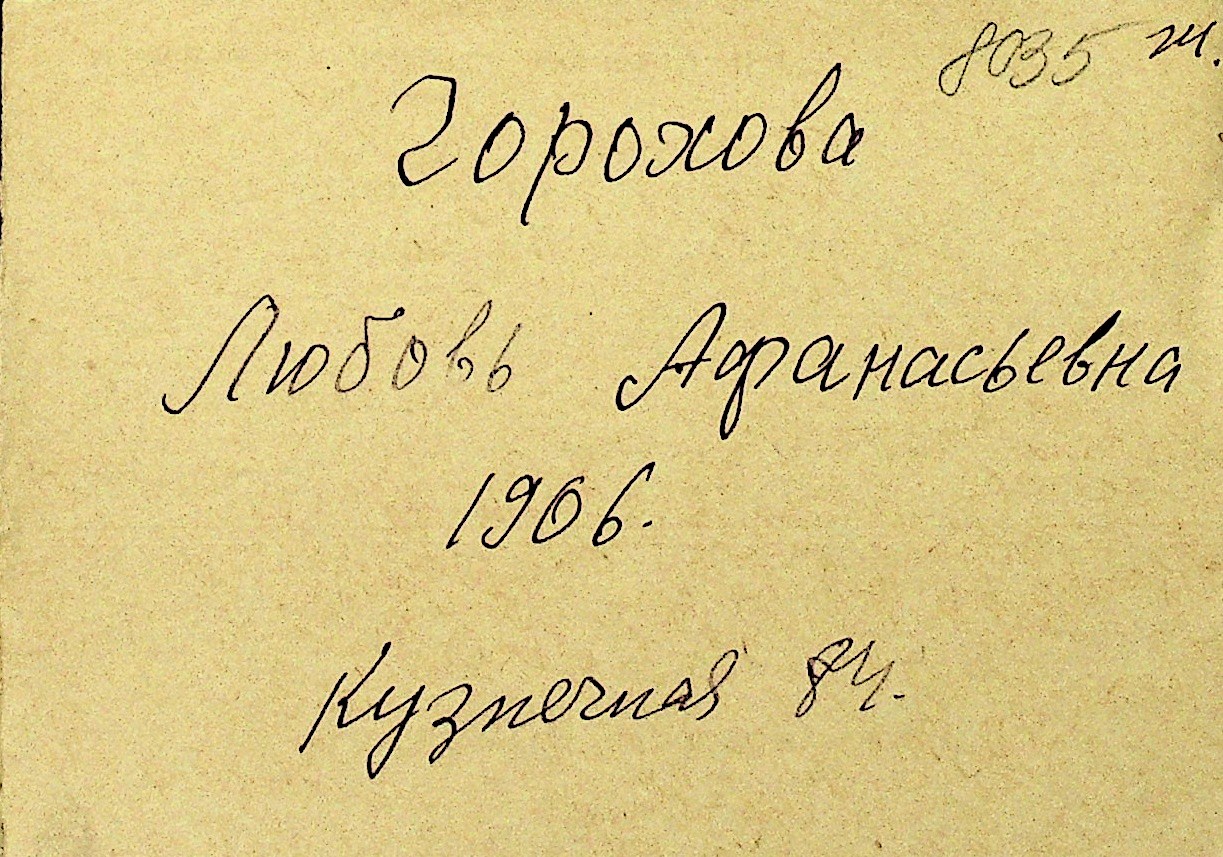 8035 ж.
Горохова
Любовь Афанасьевна
1906.
Кузнечная 84.